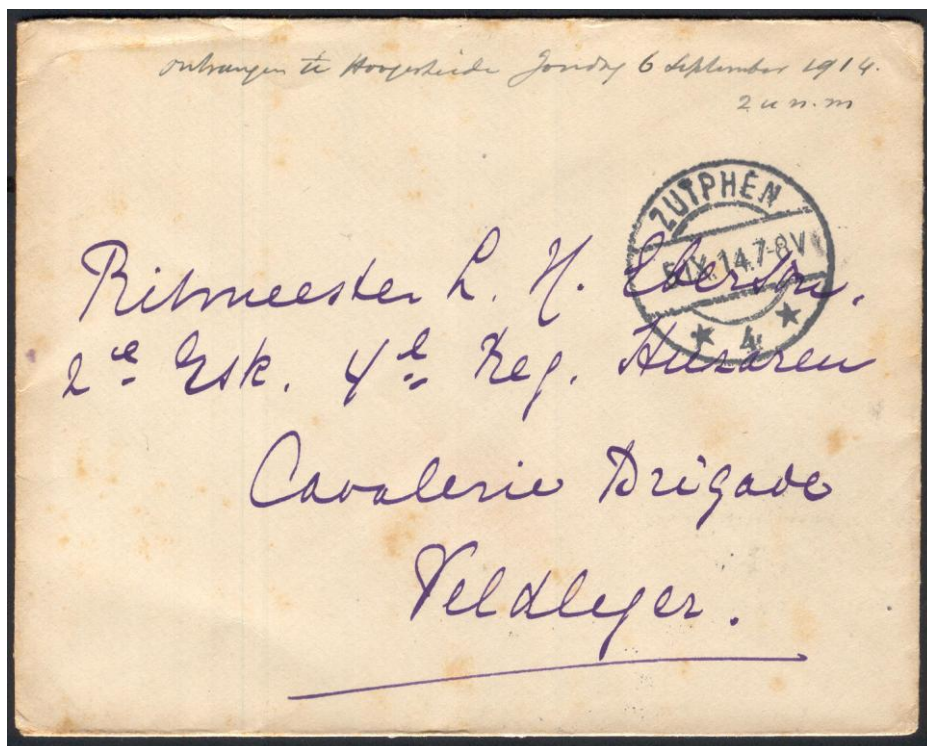 ontvangen te Hoogerheide Zondag 6 September 1914.
2 u n.m
ZUTPHEN
5.IX.14.7-8V
4
Ritmeester L. H. Eberson.
2e Esk. 4e Reg. Huzaren
Cavalerie Brigade
Veldleger.